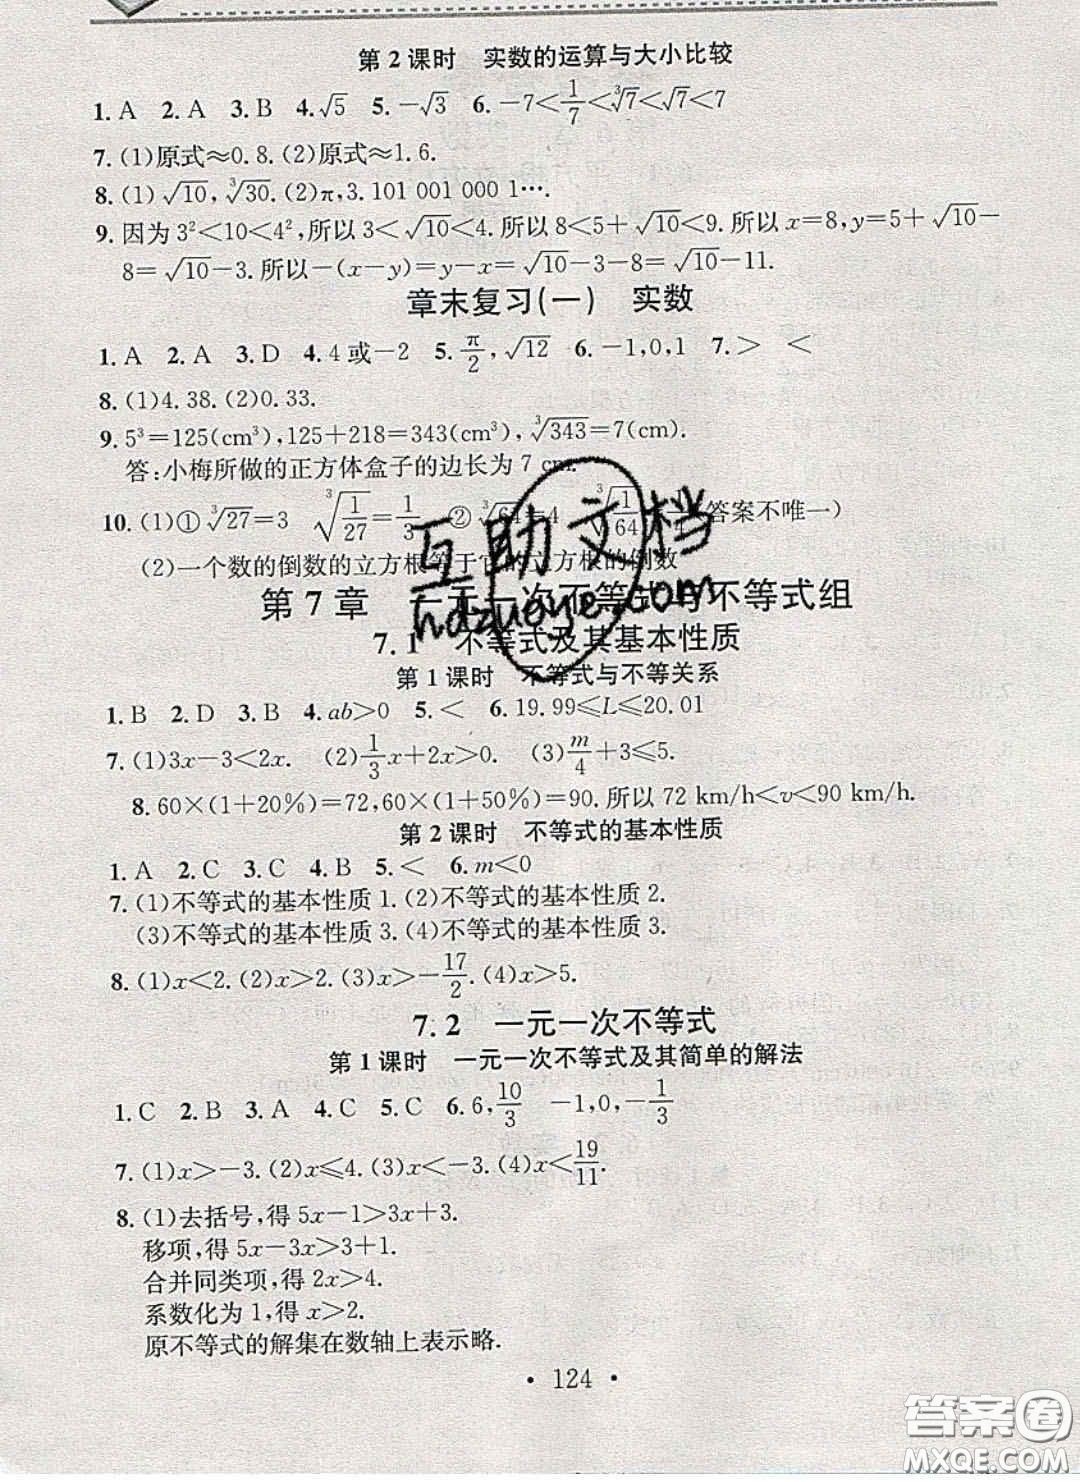 第2课时　实数的运算与大小比较
1. A　2. A　3. B　4. √5　5. －√3　6. －7＜1/7＜∛7＜√7＜7
7. (1)原式≈0.8. (2)原式≈1.6.
8. (1)√10, ∛30. (2)π, 3.101 001 000 1….
9. 因为3²＜10＜4², 所以3＜√10＜4. 所以8＜5＋√10＜9. 所以x＝8, y＝5＋√10－
8＝√10－3. 所以－(x－y)＝y－x＝√10－3－8＝√10－11.
章末复习(一)　实数
1. A　2. A　3. D　4. 4或－2　5. π/2, √12　6. －1,0,1　7. ＞　＜
8. (1)4.38. (2)0.33.
9. 5³＝125(cm³), 125＋218＝343(cm³), ∛343＝7(cm).
答:小梅所做的正方体盒子的边长为7 cm.
10. (1)① ∛27＝3　∛(1/27)＝1/3　② ∛64＝4　∛(1/64)　4 (答案不唯一)
(2)一个数的倒数的立方根等于它的立方根的倒数
第7章　一元一次不等式与不等式组
7.1　不等式及其基本性质
第1课时　不等式与不等关系
1. B　2. D　3. B　4. ab＞0　5. ＜　6. 19.99≤L≤20.01
7. (1)3x－3＜2x.　(2)1/3x＋2x＞0.　(3)m/4＋3≤5.
8. 60×(1＋20%)＝72, 60×(1＋50%)＝90. 所以72 km/h＜v＜90 km/h.
第2课时　不等式的基本性质
1. A　2. C　3. C　4. B　5. ＜　6. m＜0
7. (1)不等式的基本性质1. (2)不等式的基本性质2.
(3)不等式的基本性质3. (4)不等式的基本性质3.
8. (1)x＜2. (2)x＞2. (3)x＞－17/2. (4)x＞5.
7.2　一元一次不等式
第1课时　一元一次不等式及其简单的解法
1. C　2. B　3. A　4. C　5. C　6. 6, 10/3　－1,0,－1/3
7. (1)x＞－3. (2)x≤4. (3)x＜－3. (4)x＜19/11.
8. (1)去括号,得5x－1＞3x＋3.
移项,得5x－3x＞3＋1.
合并同类项,得2x＞4.
系数化为1,得x＞2.
原不等式的解集在数轴上表示略.
• 124 •
互助文档
hdzuoye.com
答案圈
MXQE.COM